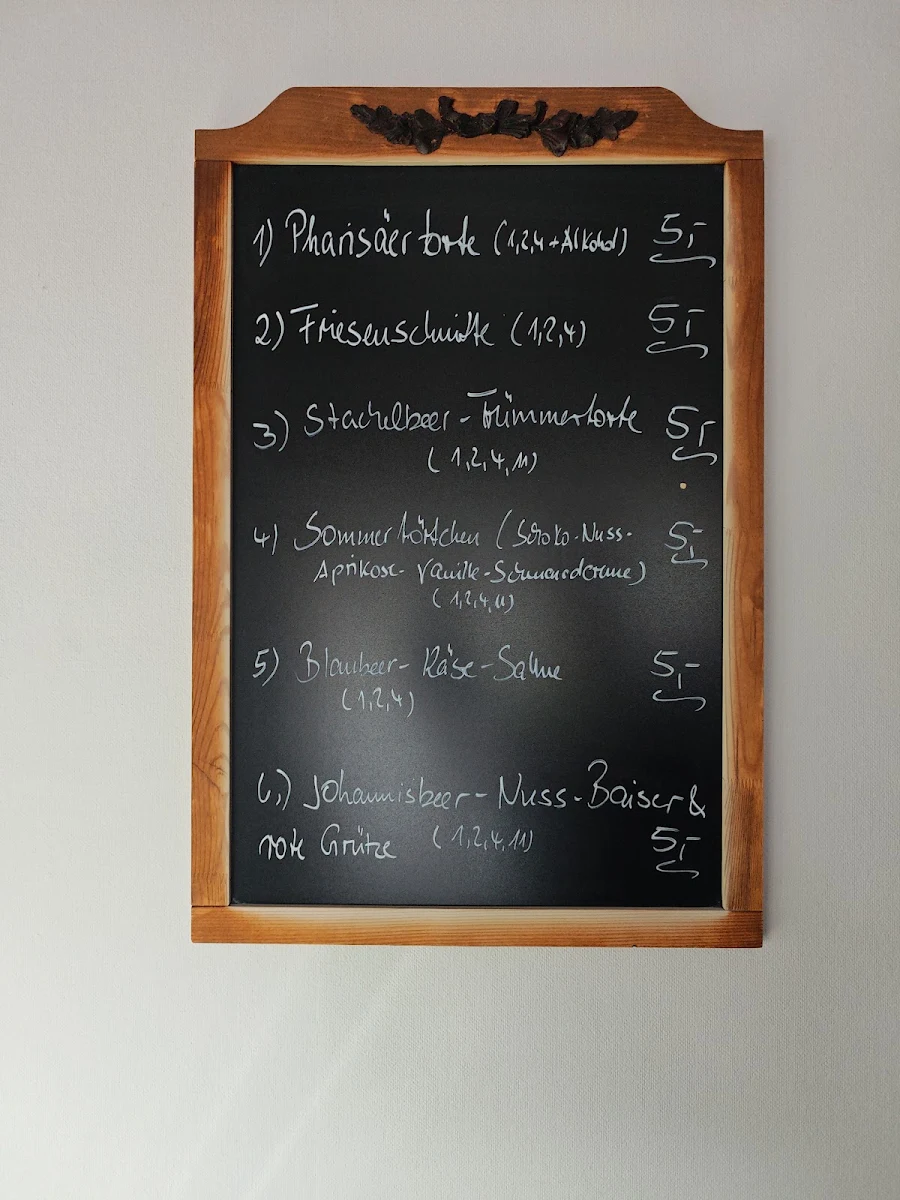 1) Pharisäertorte (1,2,4 + Alkohol) 5,-
2) Friesenschnitte (1,2,4) 5,-
3) Stachelbeer-Trümmertorte 5,-
(1,2,4,11)
4) Sommertörtchen (Schoko-Nuss- 5,-
Aprikose-Vanille-Schmandcreme)
(1,2,4,11)
5) Blaubeer-Käse-Sahne 5,-
(1,2,4)
6.) Johannisbeer-Nuss-Baiser &
rote Grütze (1,2,4,11) 5,-